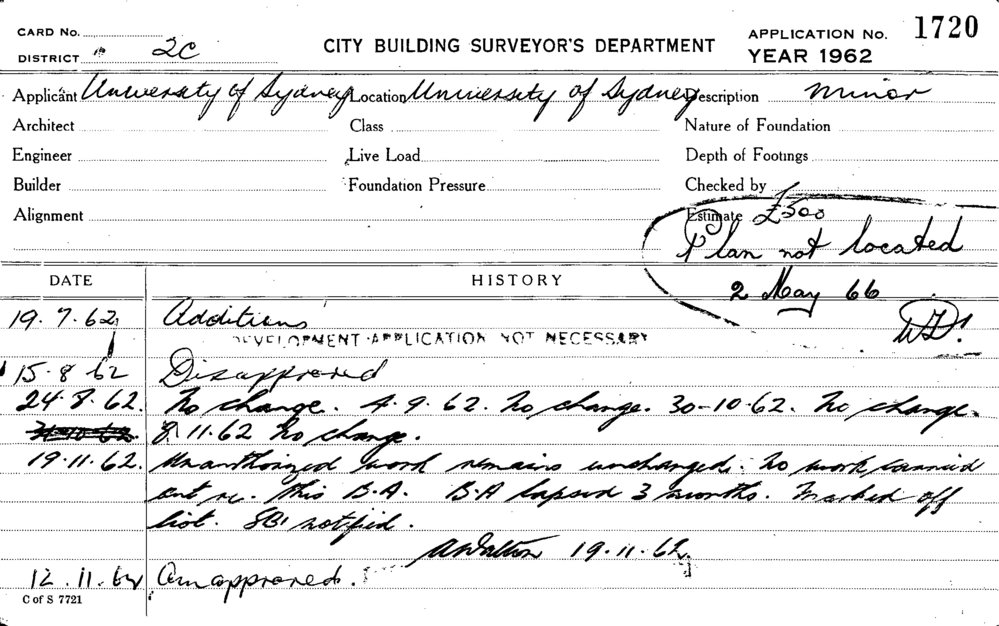 CARD No.
DISTRICT 2C
CITY BUILDING SURVEYOR'S DEPARTMENT
APPLICATION No. 1720
YEAR 1962
Applicant University of Sydney Location University of Sydney Description minor
Architect Class Nature of Foundation
Engineer Live Load Depth of Footings
Builder Foundation Pressure Checked by
Alignment Estimate £500
Plan not located
2 May 66
DATE HISTORY
19.7.62 Additions
DEVELOPMENT APPLICATION NOT NECESSARY
15.8.62 Disapproved
24.8.62. No change. 4.9.62. No change. 30-10-62. No change.
8.11.62 No change.
19.11.62. Unauthorized word remains unchanged. No work carried
out re. this B.A. B.A lapsed 3 months. Marked off
list. SBI notified.
19.11.62.
12.11.64 approved.
C of S 7721